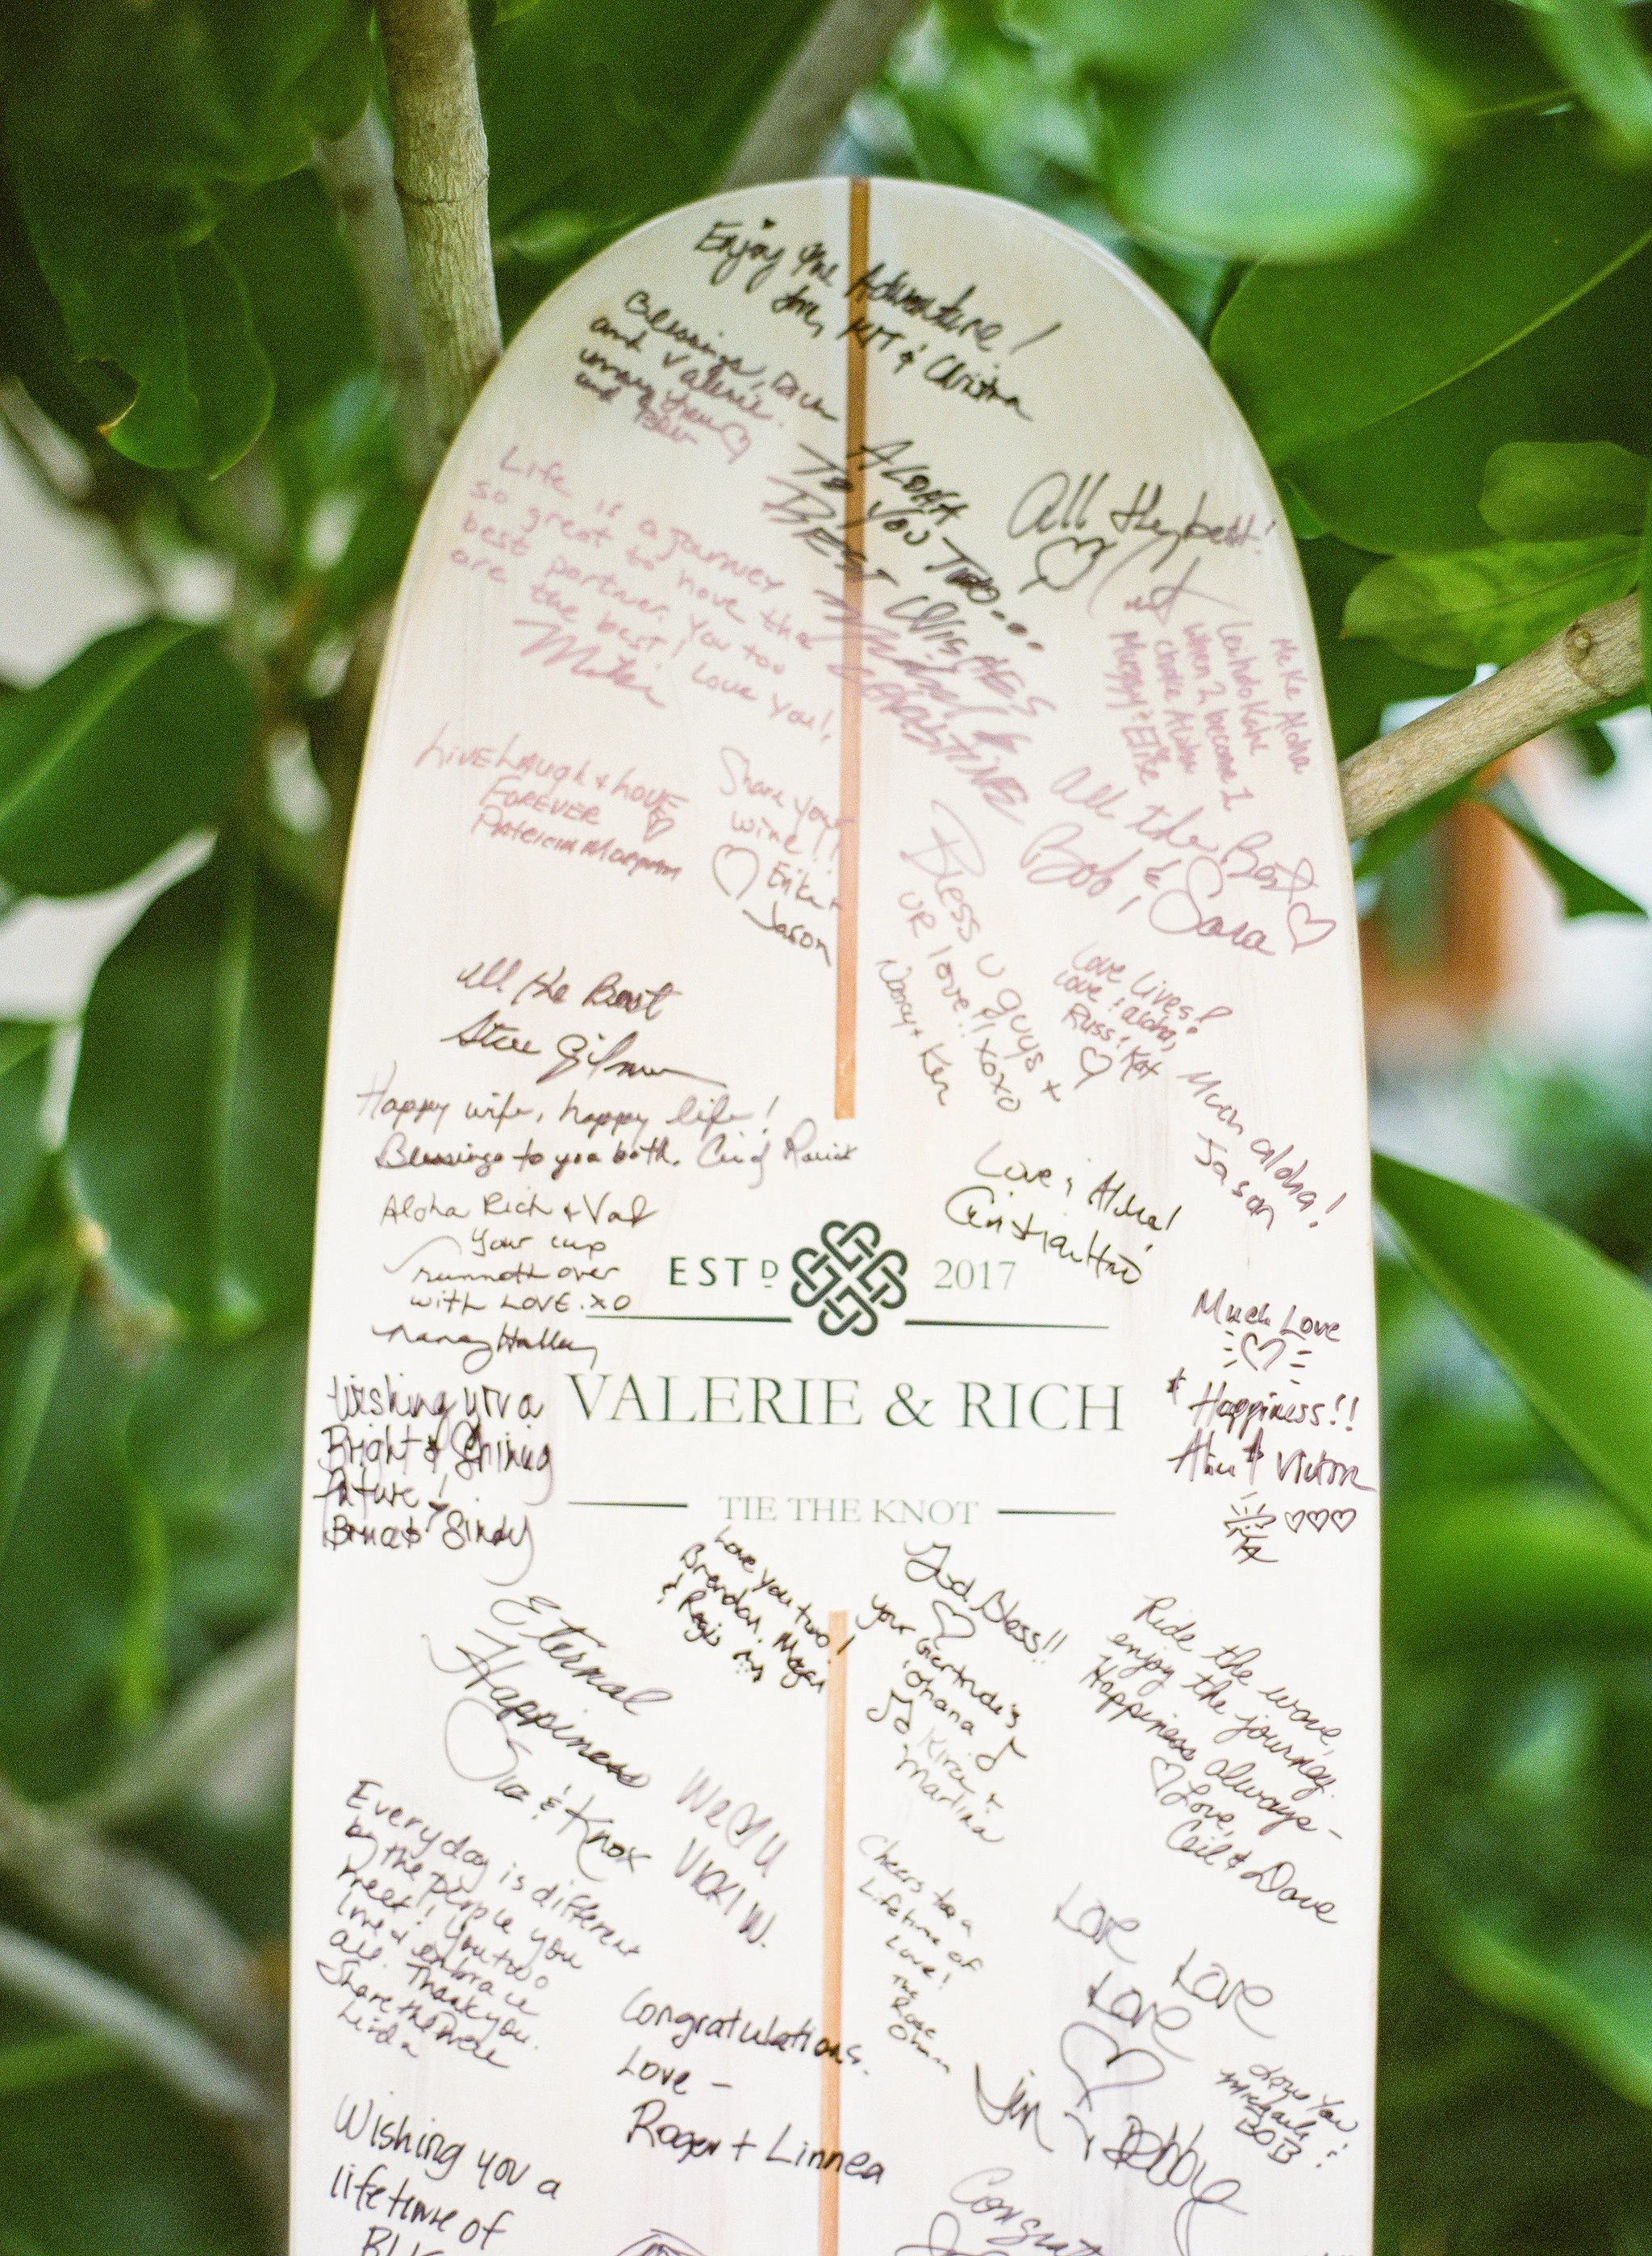 Enjoy the Adventure!
& Christina
Blessings,
and Valerie.
and
ALOHA
TO YOU TWO....
BEST WISHES
All the best!
Life is a journey
so great to have the
best partner. You too
are the best! Love you!,
Mike
Me Ke Aloha
when 2 become 1
Live Laugh + Love
FOREVER
Patricia
Share your
wine!!
Erika +
Jason
All the Best
Bob & Sara
Bless u guys +
UR love!! xoxo
Nancy + Ken
Love Lives!
Love & aloha,
Russ & Kat
All the Best
Steve
Happy wife, happy life!
Blessings to you both.
Much aloha!
Jason
Love & Aloha!
Aloha Rich + Val
Your cup
runneth over
with LOVE. XO
Nancy
ESTD 2017
VALERIE & RICH
TIE THE KNOT
Much Love
+ Happiness!!
& Victor
Wishing you a
Bright & Shining
future!
& Sindy
Love you two!
Brendan, Megan
&
God Bless!!
your
'ohana
+
Martina
Ride the wave,
enjoy the journey.
Happiness always -
Love,
Ceil & Dave
Eternal
Happiness
& Knox
We U
VICKI W.
Everyday is different
by the people you
meet! You two
love & embrace
all. Thank you.
Share the
Linda
Cheers to a
Lifetime of
Love!
The
Rose
Love
Love
Love
Jim & Debby
Love You
Michael &
BOB
Congratulations.
Love -
Roger + Linnea
Wishing you a
lifetime of